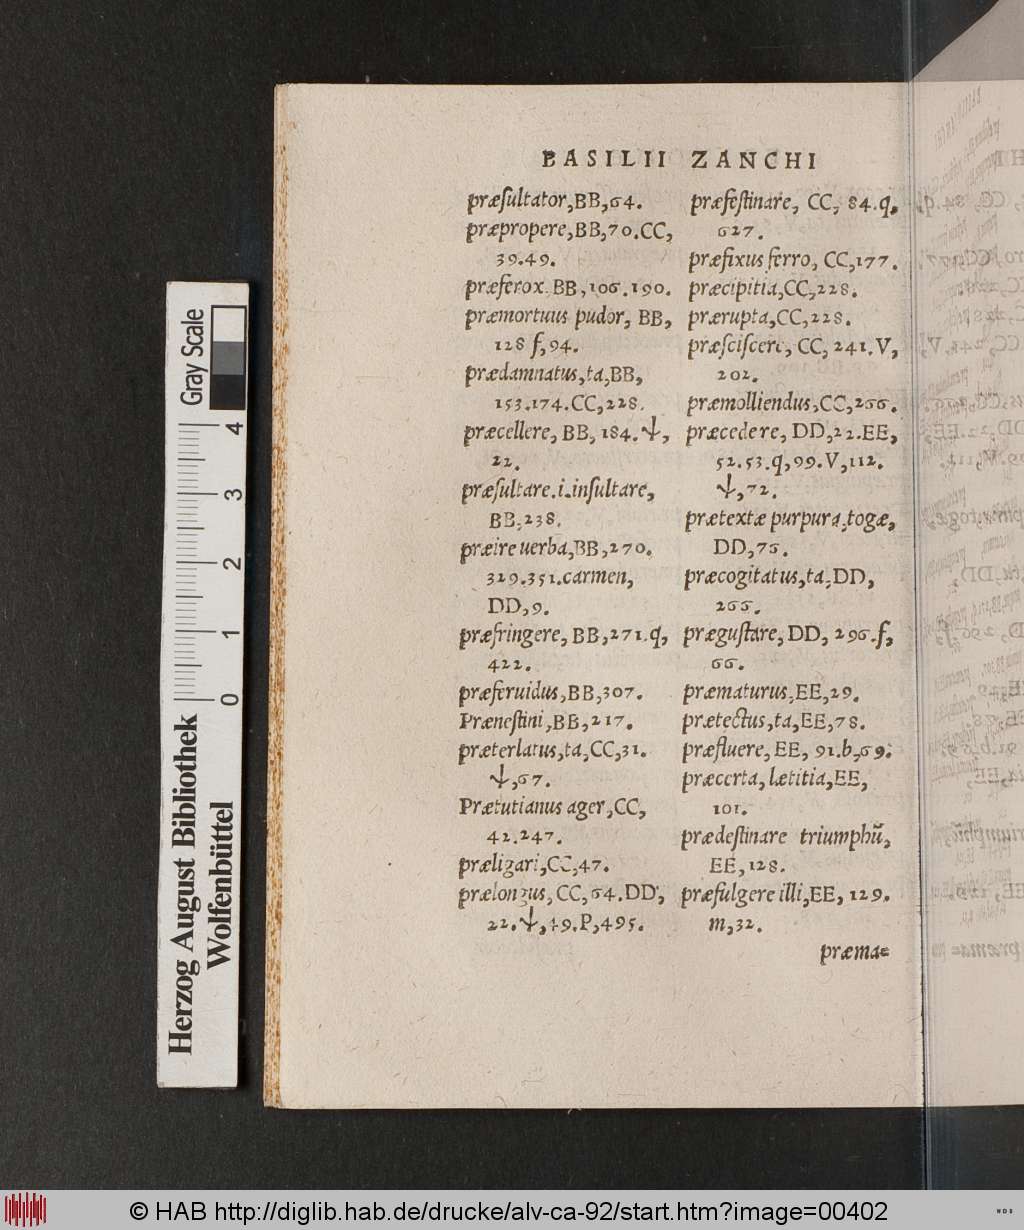 BASILII ZANCHI
præſultator,BB,64.
præpropere,BB,70.CC,
39.49.
præferox BB,106.190.
præmortuus pudor, BB,
128 f,94.
prædamnatus,ta,BB,
153.174.CC,228.
præcellere, BB, 184.ↆ,
22.
præſultare.i.inſultare,
BB,238.
præire uerba,BB,270.
329.351.carmen,
DD,9.
præfringere, BB,271.q,
422.
præferuidus,BB,307.
Præneſtini,BB,217.
præterlatus,ta,CC,31.
ↆ,67.
Prætutianus ager,CC,
42.247.
præligari,CC,47.
prælongus, CC,64.DD,
22.ↆ,49.P,495.
præfeſtinare, CC, 84.q,
627.
præfixus ferro, CC,177.
præcipitia,CC,228.
prærupta,CC,228.
præſciſcere, CC, 241.V,
202.
præmolliendus,CC,266.
præcedere, DD,22.EE,
52.53.q,99.V,112.
ↆ,72.
prætextæ purpura,togæ,
DD,76.
præcogitatus,ta,DD,
266.
præguſtare, DD, 296.f,
66.
præmaturus,EE,29.
prætectus,ta,EE,78.
præfluere, EE, 91.b,69.
præcerta, lætitia,EE,
101.
prædeſtinare triumphũ,
EE,128.
præfulgere illi,EE, 129.
m,32.
præma=
Gray Scale
0 1 2 3 4
Herzog August Bibliothek
Wolfenbüttel
© HAB http://diglib.hab.de/drucke/alv-ca-92/start.htm?image=00402
WDB